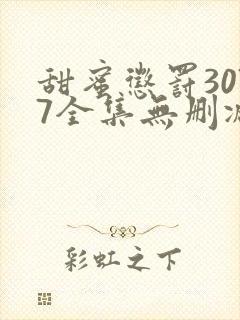 甜蜜懲罰30
7全集無刪減
彩虹之下